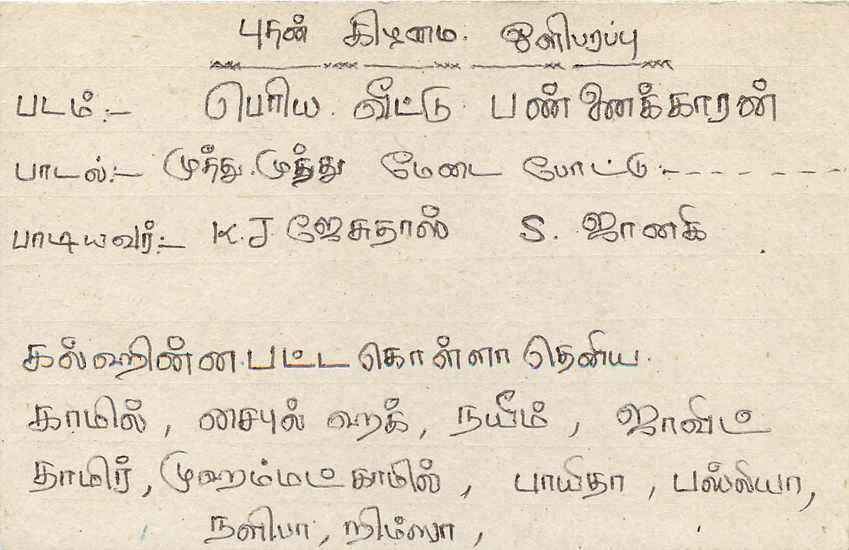 புதன் கிழமை. ஒளிபரப்பு
படம்:- பெரிய. வீட்டு பண்ணைக்காரன்
பாடல்:- முத்து.முத்து மேடை போட்டு.- - - - - -
பாடியவர்:- K.J ஜேசுதாஸ் S. ஜானகி
கல்ஹின்ன.பட்டகொள்ளாதெனிய.
காமில், சைபுல் ஹக், நயீம், ஜாவிட்
தாமிர், முஹம்மட் காமில், பாயிதா, பஸ்லியா,
நளிபா, றிம்ஸா,